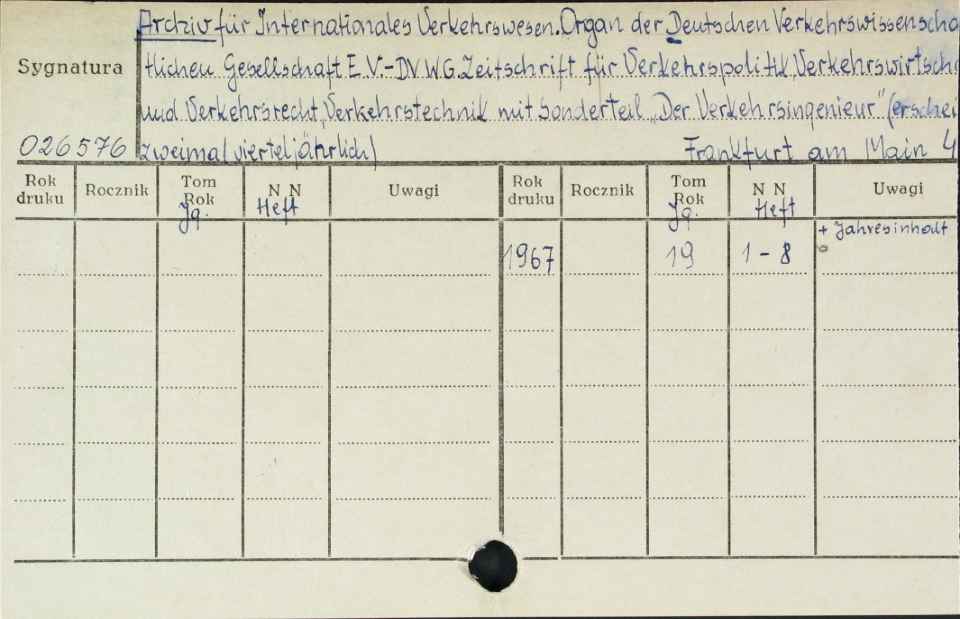 Archiv für Internationales Verkehrswesen. Organ der Deutschen Verkehrswissenscha
Sygnatura
tlichen Gesellschaft E.V.-DVWG. Zeitschrift für Verkehrspolitik, Verkehrswirtscha
und Verkehrsrecht, Verkehrstechnik mit Sonderteil „Der Verkehrsingenieur" (erschei
026576
zweimal vierteljährlich) Frankfurt am Main 4
Rok druku Rocznik Tom Rok Jg. N N Heft Uwagi Rok druku Rocznik Tom Rok Jg. N N Heft Uwagi
1967 19 1-8 + Jahresinhalt